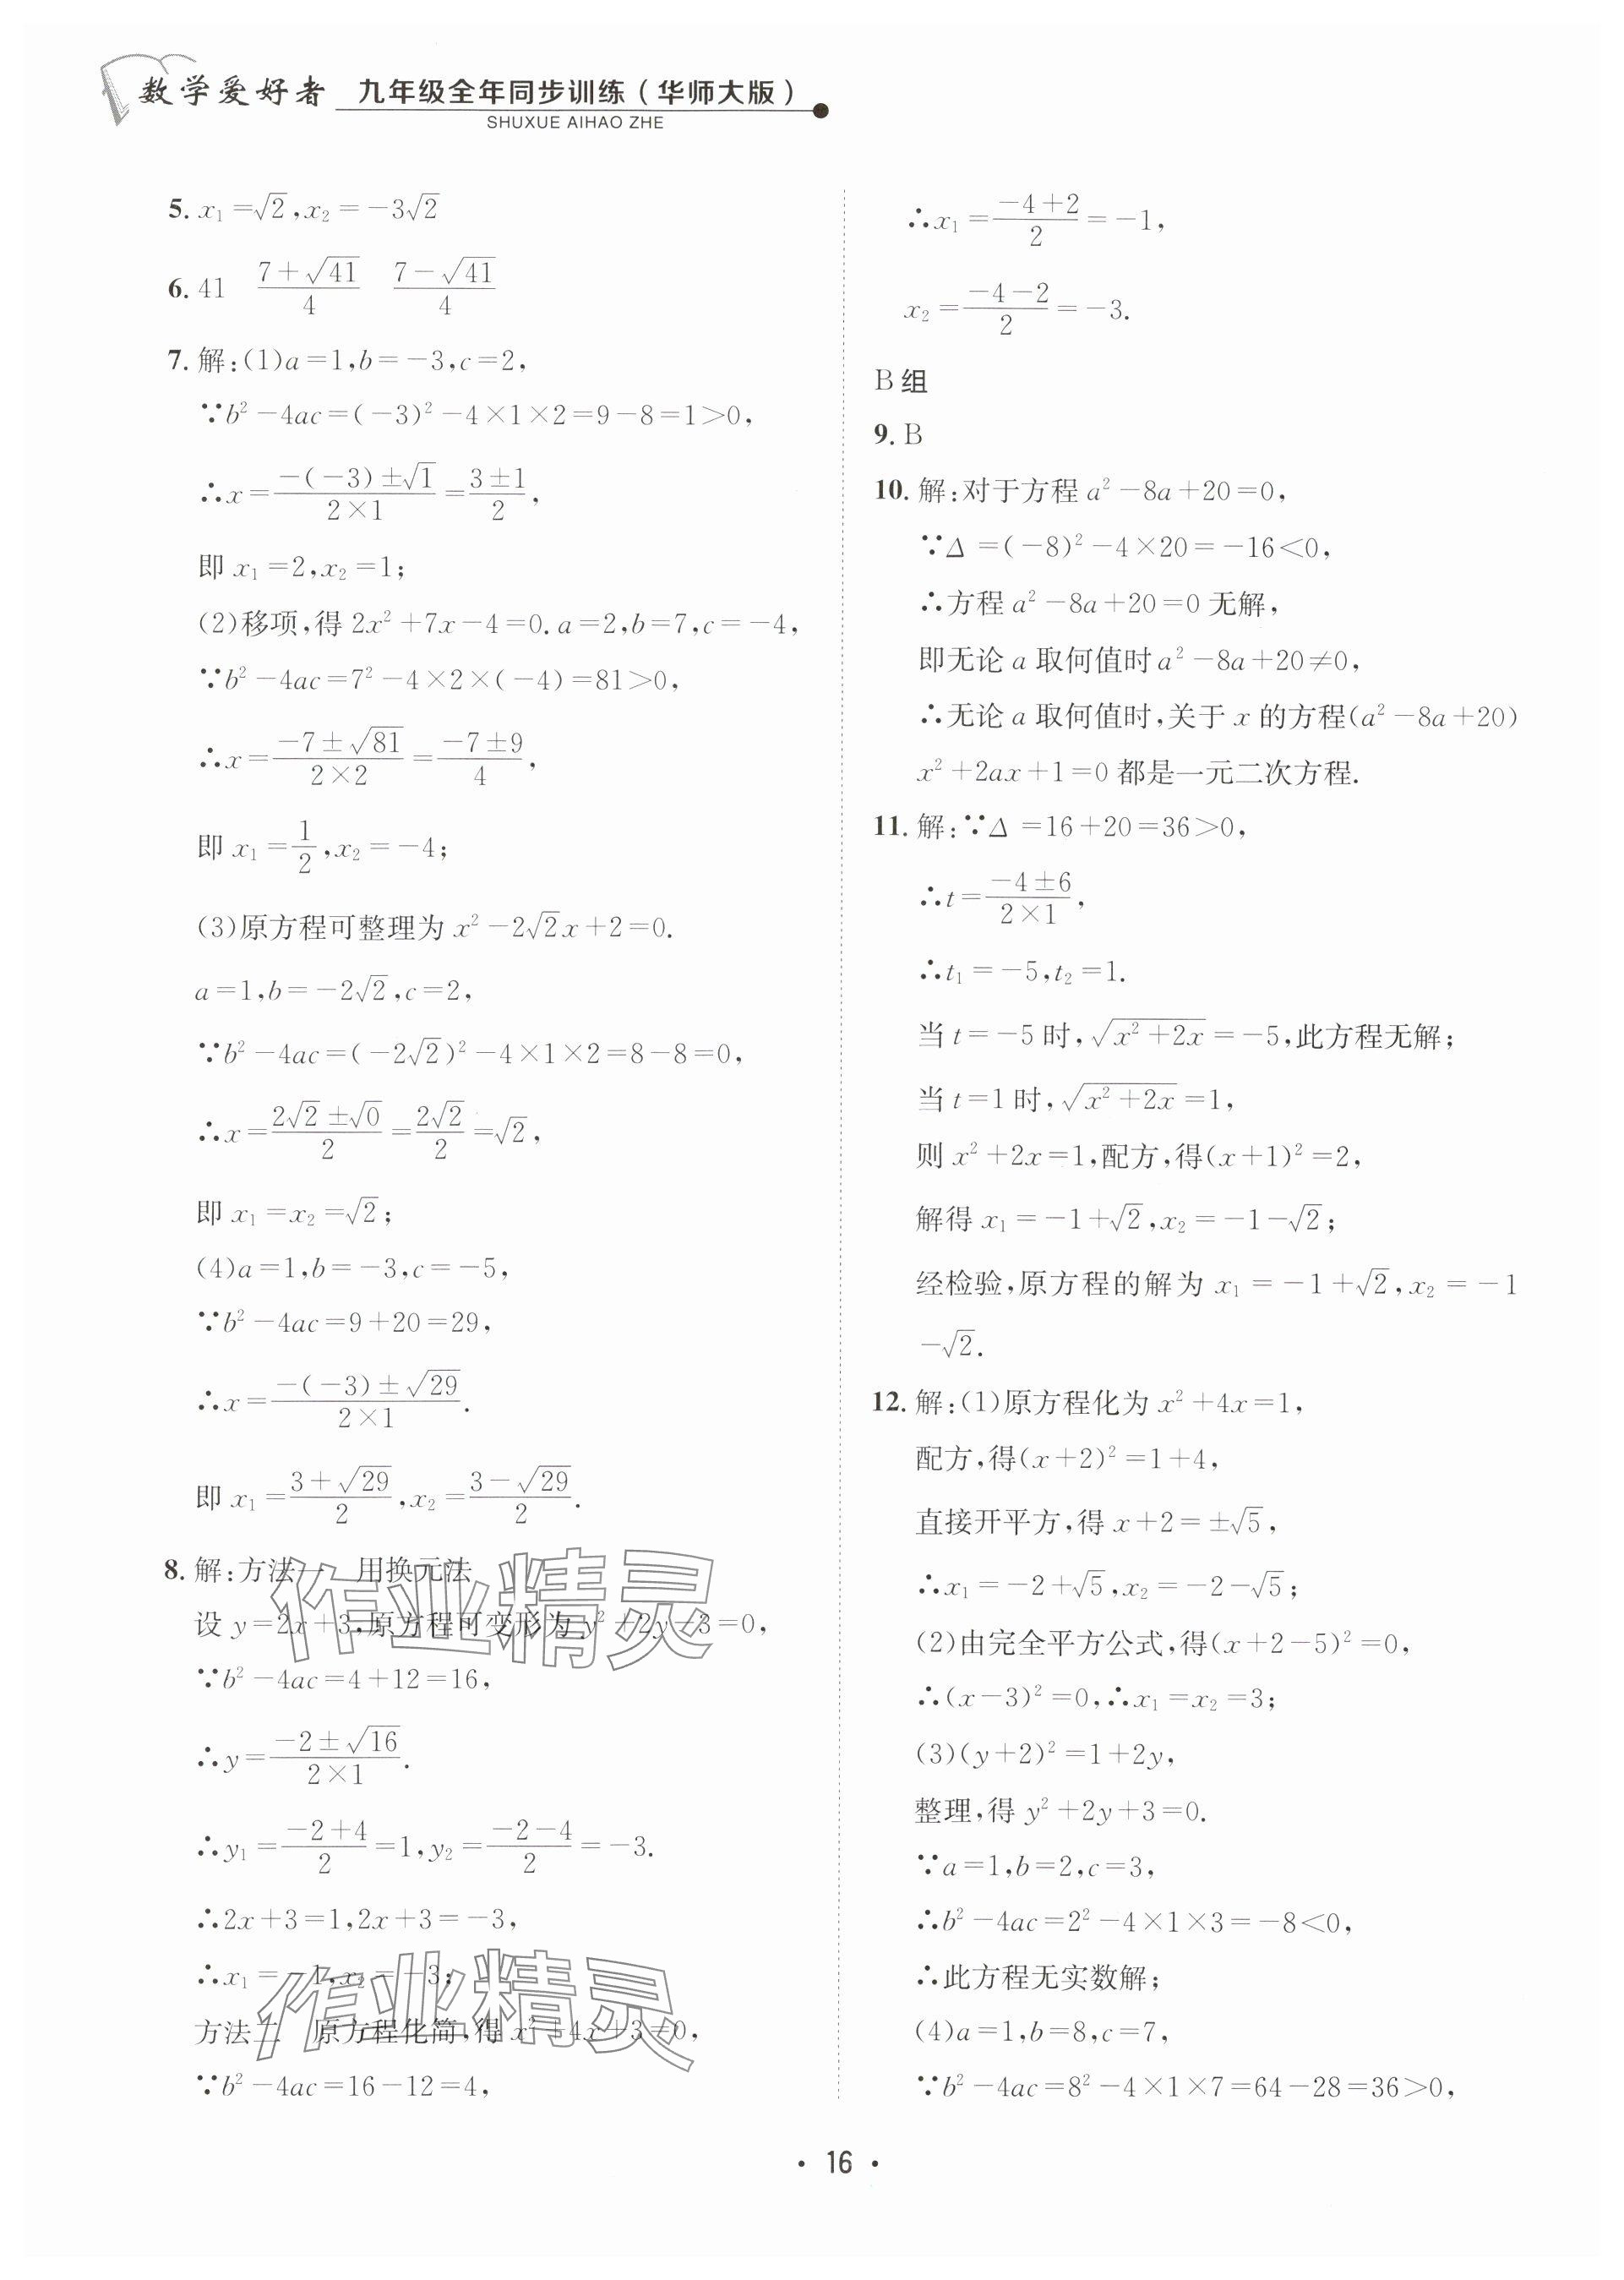 数学爱好者 九年级全年同步训练（华师大版）
SHUXUE AIHAO ZHE
5. x₁=√2,x₂=-3√2
6. 41 (7+√41)/4 (7-√41)/4
7. 解:(1)a=1,b=-3,c=2,
∵b²-4ac=(-3)²-4×1×2=9-8=1>0,
∴x=(-(-3)±√1)/(2×1)=(3±1)/2,
即 x₁=2,x₂=1;
(2)移项,得 2x²+7x-4=0. a=2,b=7,c=-4,
∵b²-4ac=7²-4×2×(-4)=81>0,
∴x=(-7±√81)/(2×2)=(-7±9)/4,
即 x₁=1/2,x₂=-4;
(3)原方程可整理为 x²-2√2x+2=0.
a=1,b=-2√2,c=2,
∵b²-4ac=(-2√2)²-4×1×2=8-8=0,
∴x=(2√2±√0)/2=(2√2)/2=√2,
即 x₁=x₂=√2;
(4)a=1,b=-3,c=-5,
∵b²-4ac=9+20=29,
∴x=(-(-3)±√29)/(2×1).
即 x₁=(3+√29)/2,x₂=(3-√29)/2.
8. 解:方法一 用换元法
设 y=2x+3,原方程可变形为 y²+2y-3=0,
∵b²-4ac=4+12=16,
∴y=(-2±√16)/(2×1).
∴y₁=(-2+4)/2=1,y₂=(-2-4)/2=-3.
∴2x+3=1,2x+3=-3,
∴x₁=-1,x₂=-3;
方法二 原方程化简,得 x²+4x+3=0,
∵b²-4ac=16-12=4,
∴x₁=(-4+2)/2=-1,
x₂=(-4-2)/2=-3.
B 组
9. B
10. 解:对于方程 a²-8a+20=0,
∵Δ=(-8)²-4×20=-16<0,
∴方程 a²-8a+20=0 无解,
即无论 a 取何值时 a²-8a+20≠0,
∴无论 a 取何值时,关于 x 的方程(a²-8a+20)
x²+2ax+1=0 都是一元二次方程.
11. 解:∵Δ=16+20=36>0,
∴t=(-4±6)/(2×1),
∴t₁=-5,t₂=1.
当 t=-5 时,√(x²+2x)=-5,此方程无解;
当 t=1 时,√(x²+2x)=1,
则 x²+2x=1,配方,得(x+1)²=2,
解得 x₁=-1+√2,x₂=-1-√2;
经检验,原方程的解为 x₁=-1+√2,x₂=-1
-√2.
12. 解:(1)原方程化为 x²+4x=1,
配方,得(x+2)²=1+4,
直接开平方,得 x+2=±√5,
∴x₁=-2+√5,x₂=-2-√5;
(2)由完全平方公式,得(x+2-5)²=0,
∴(x-3)²=0,∴x₁=x₂=3;
(3)(y+2)²=1+2y,
整理,得 y²+2y+3=0.
∵a=1,b=2,c=3,
∴b²-4ac=2²-4×1×3=-8<0,
∴此方程无实数解;
(4)a=1,b=8,c=7,
∵b²-4ac=8²-4×1×7=64-28=36>0,
作业精灵
作业精灵
· 16 ·